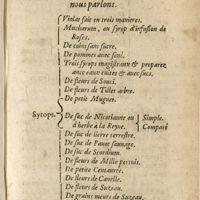 nous parlons.
Violat fait en trois manieres.
Mucharum, ou syrop d'infusion de
Roses.
De coins sans sucre.
De pommes avec senï.
Trois syrops magistraux & preparez
avec eaux cuites & avec sucs.
De fleurs de Souci.
De fleurs de Tillet arbre.
De petit Muguet.
Syrops.
De suc de Nicotianne ou
d'herbe à la Reyne.
Simple.
Composé
De suc de lierre terrestre.
De suc de Pavot sauvage.
De suc de Scordium.
De fleurs de Mille pertuis.
De petite Centauree.
De fleurs de Canelle.
De fleurs de Suzeau.
De grains meurs de Suzeau.